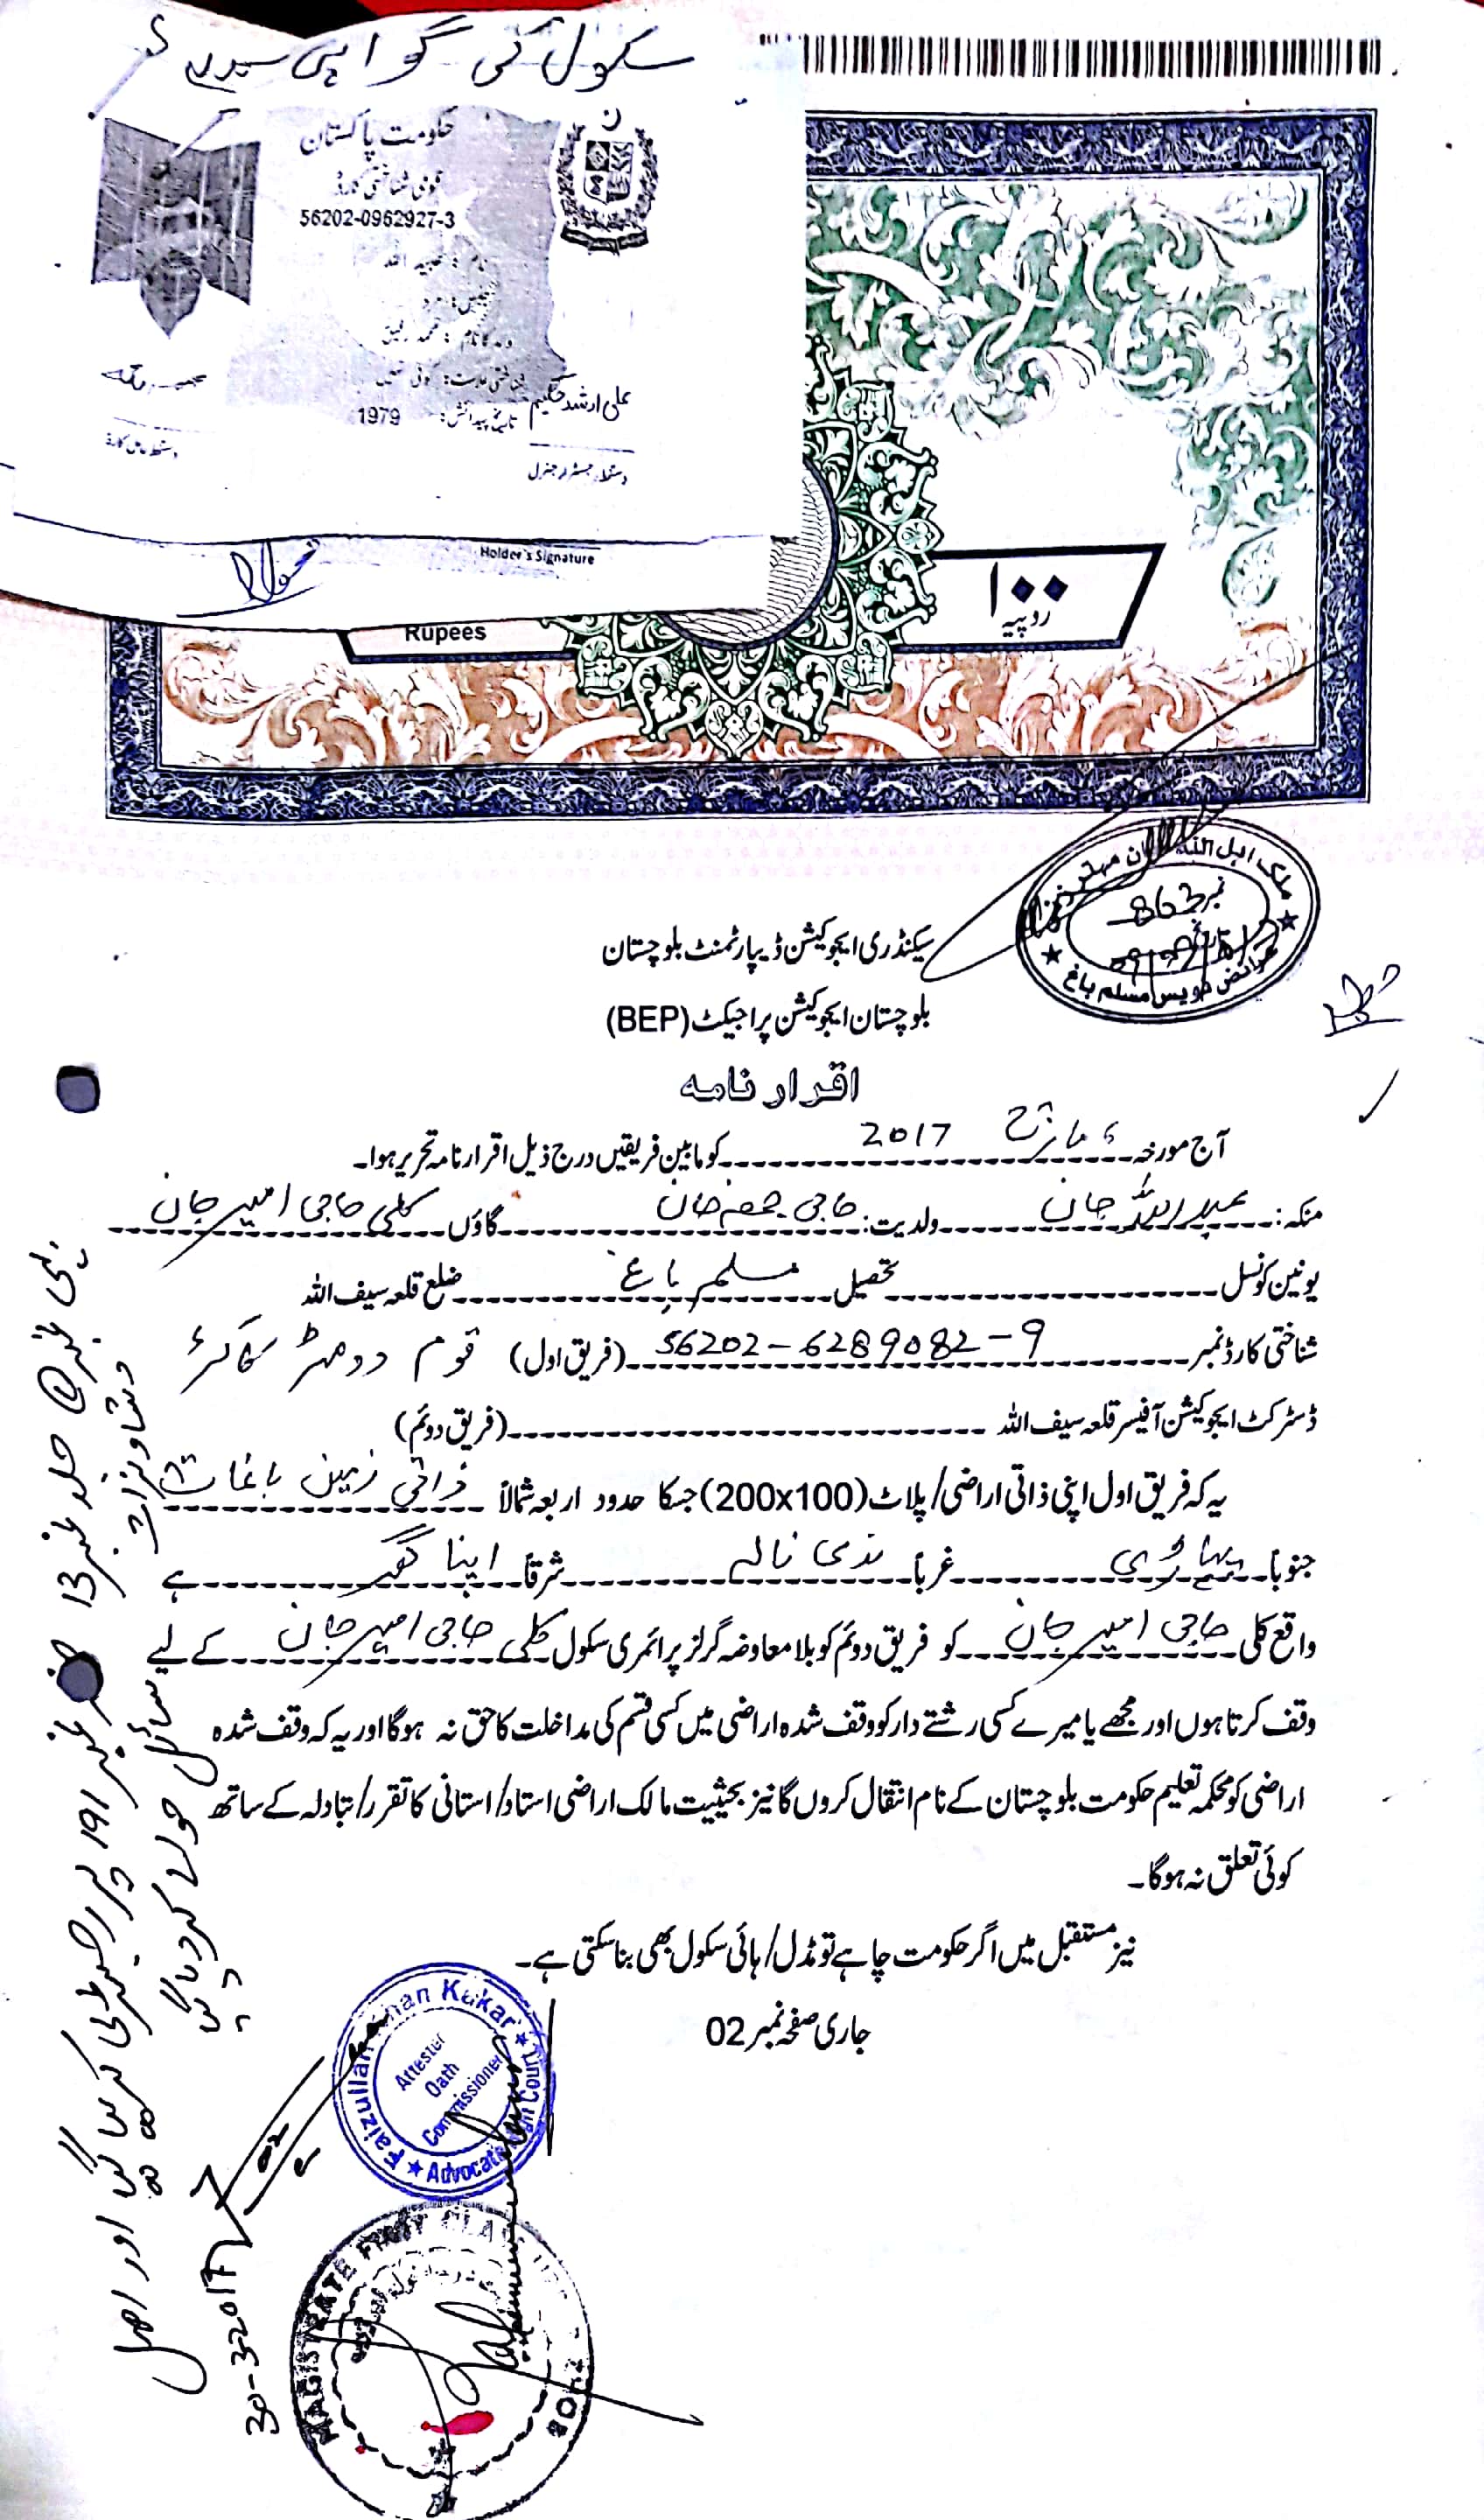 سکول کی گواہی
حکومت پاکستان
قومی شناختی کارڈ
56202-0962927-3
نام:
اللہ
جنس: مرد
والد کا نام: محمد
شناختی علامت: کوئی نہیں
تاریخ پیدائش: 1979
علی ارشد حکیم
دستخط حامل کارڈ
دستخط رجسٹرار جنرل
Holder's Signature
Rupees
۱۰۰
روپیہ
نمبر 863
عرائض نویس مسلم باغ
سیکنڈری ایجوکیشن ڈیپارٹمنٹ بلوچستان
بلوچستان ایجوکیشن پراجیکٹ (BEP)
اقرار نامہ
آج مورخہ 6 مارچ 2017 کو مابین فریقین درج ذیل اقرار نامہ تحریر ہوا۔
منکہ: عبداللہ جان ولدیت: حاجی جمعہ خان گاؤں کلی حاجی امیر جان
یونین کونسل تحصیل مسلم باغ ضلع قلعہ سیف اللہ
شناختی کارڈ نمبر 56202-6289082-9 (فریق اول) قوم
ڈسٹرکٹ ایجوکیشن آفیسر قلعہ سیف اللہ (فریق دوئم)
یہ کہ فریق اول اپنی ذاتی اراضی/پلاٹ (200x100) جسکا حدود اربعہ شمالاً ذاتی زمین باغات
جنوباً پہاڑی غرباً ندی نالہ شرقاً اپنا گھر ہے
واقع کلی حاجی امیر جان کو فریق دوئم کو بلا معاوضہ گرلز پرائمری سکول کلی حاجی امیر جان کے لیے
وقف کرتا ہوں اور مجھے یا میرے کسی رشتے دار کو وقف شدہ اراضی میں کسی قسم کی مداخلت کا حق نہ ہوگا اور یہ کہ وقف شدہ
اراضی کو محکمہ تعلیم حکومت بلوچستان کے نام انتقال کروں گا نیز بحیثیت مالک اراضی استاد/استانی کا تقرر/تبادلہ کے ساتھ
کوئی تعلق نہ ہوگا۔
نیز مستقبل میں اگر حکومت چاہے تو مڈل/ہائی سکول بھی بنا سکتی ہے۔
جاری صفحہ نمبر 02
جلد نمبر 13
نمبر 191 پر رجسٹری کریں گئیں اور اصل
دستاویزات سائل حوالہ کردیا گیا
30-3-2017
Faizullah Khan Kakar
Attester
Oath
Commissioner
Advocate High Court
MAGISTRATE FIRST CLASS